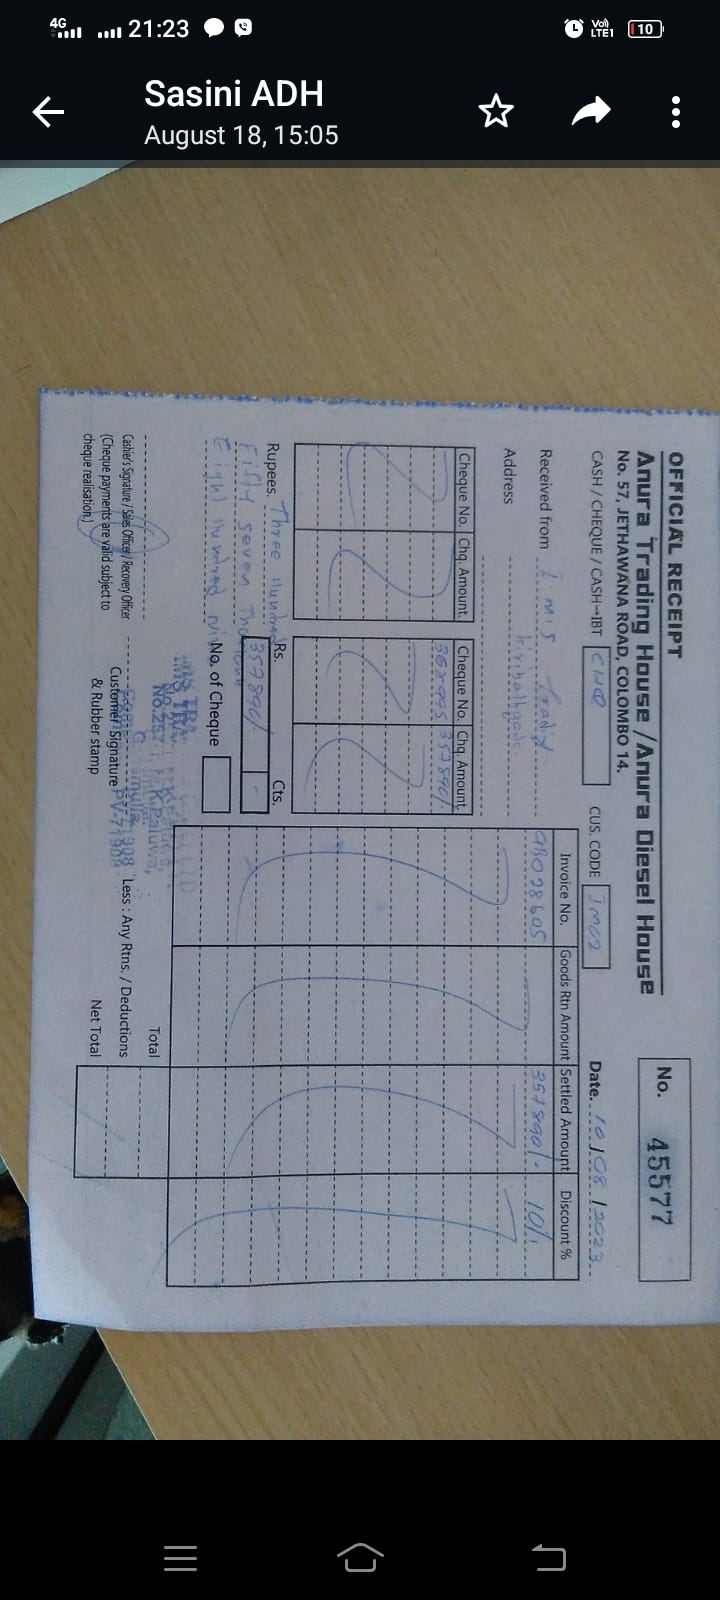 4G 21:23 Vo) LTE1 10
Sasini ADH
August 18, 15:05
OFFICIAL RECEIPT
Anura Trading House / Anura Diesel House
No. 57, JETHAWANA ROAD, COLOMBO 14.
No. 45577
CASH / CHEQUE / CASH→IBT CHQ CUS. CODE IM02 Date. 10/08/2023
Received from I.M.S
Kiribathgoda
Address
Cheque No. Chq. Amount. Cheque No. Chq. Amount.
357890/.
Invoice No. Goods Rtn Amount Settled Amount Discount %
357890/. 10/.
Rupees. Three Hundred
Fifty seven
Eight Hundred
Rs. Cts.
357890/ -
No. of Cheque
Total
Less : Any Rtns. / Deductions
Net Total
Cashier's Signature / Sales Officer / Recovery Officer
(Cheque payments are valid subject to
cheque realisation.)
Customer Signature
& Rubber stamp
IMS TRA
No.257
PV-71908